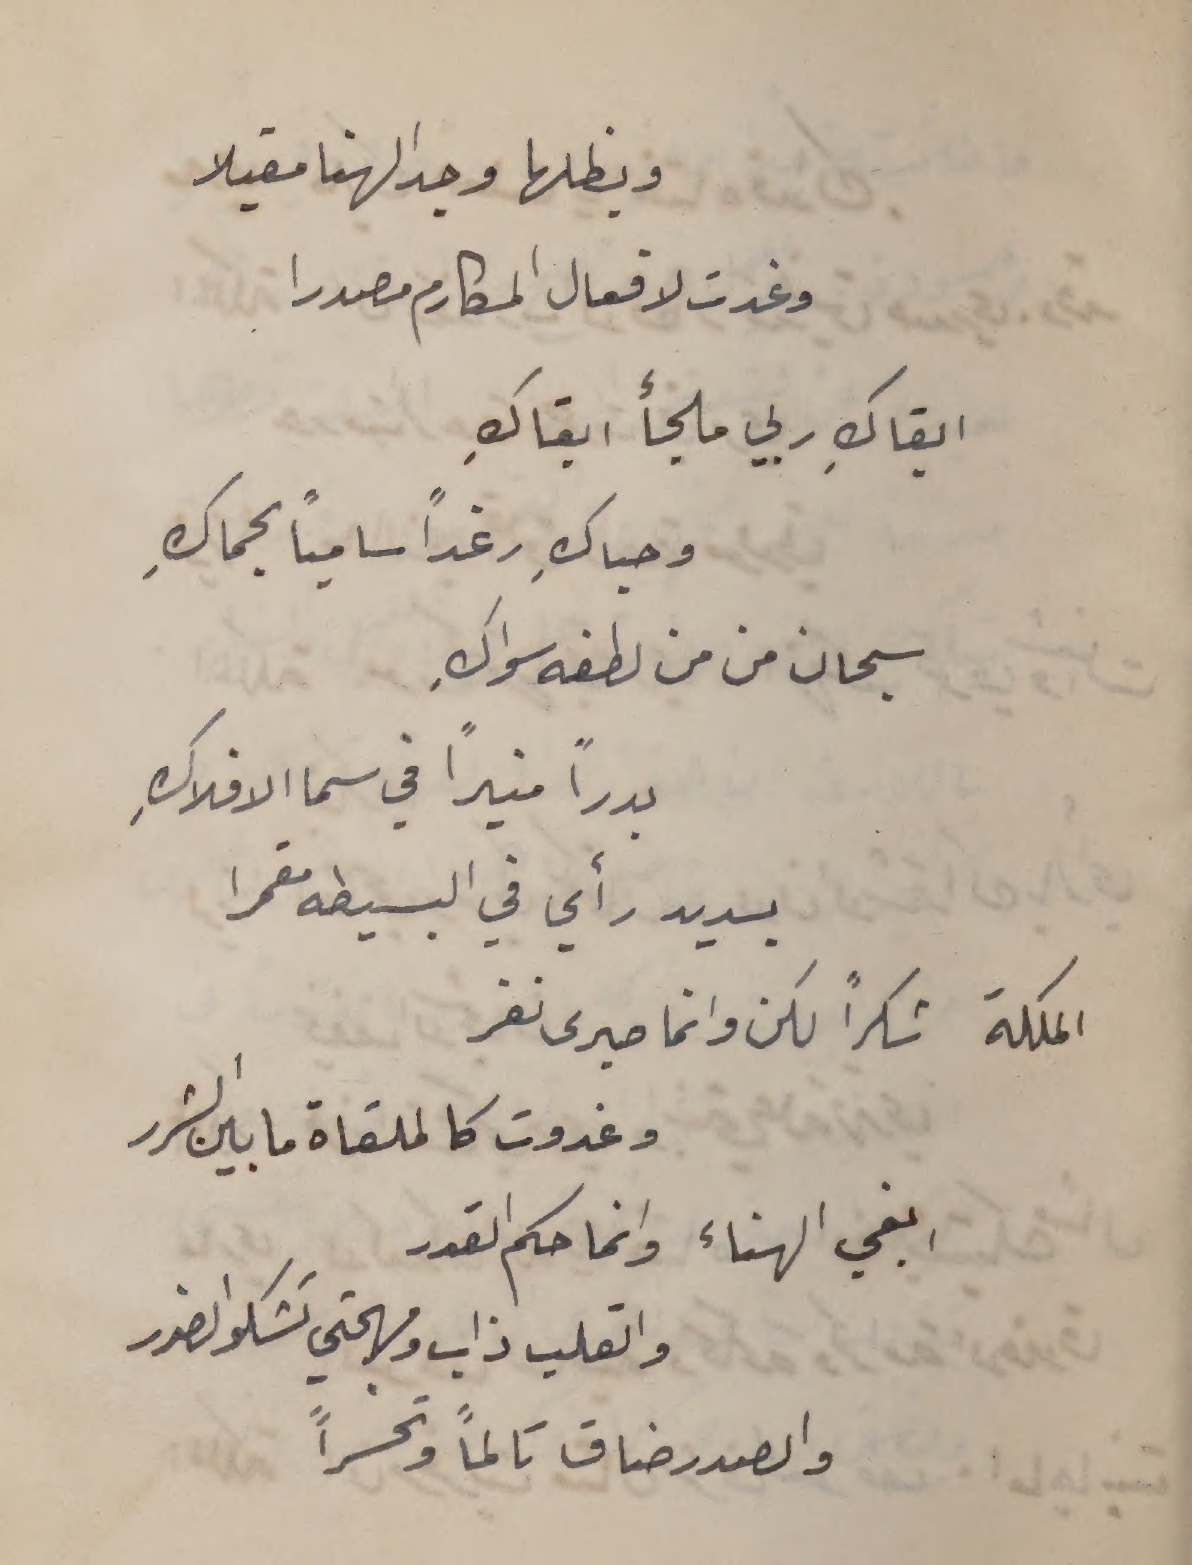 وبظلها وجد الهنا مقيلا
وغدت لافعال المكارم مصدرا
ابقاكِ ربي ملجأ ابقاكِ
وحباكِ رغداً سامياً بحماكِ
سبحان من من لطفه سواكِ
بدراً منيراً في سما الافلاكِ
بسديد رأي في البسيطه مقمرا
الملكة شكراً لكن وانما صبرى نفر
وغدوت كالملقاة ما بين الشرر
ابغي الهناء وانما حكم القدر
والقلب ذاب ومهجتي تشكو الضرر
والصدر ضاق تالماً وتحسراً